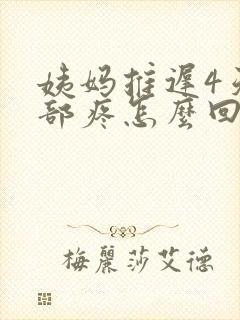 姨妈推遲4天
部疼怎麼回
梅麗莎艾德